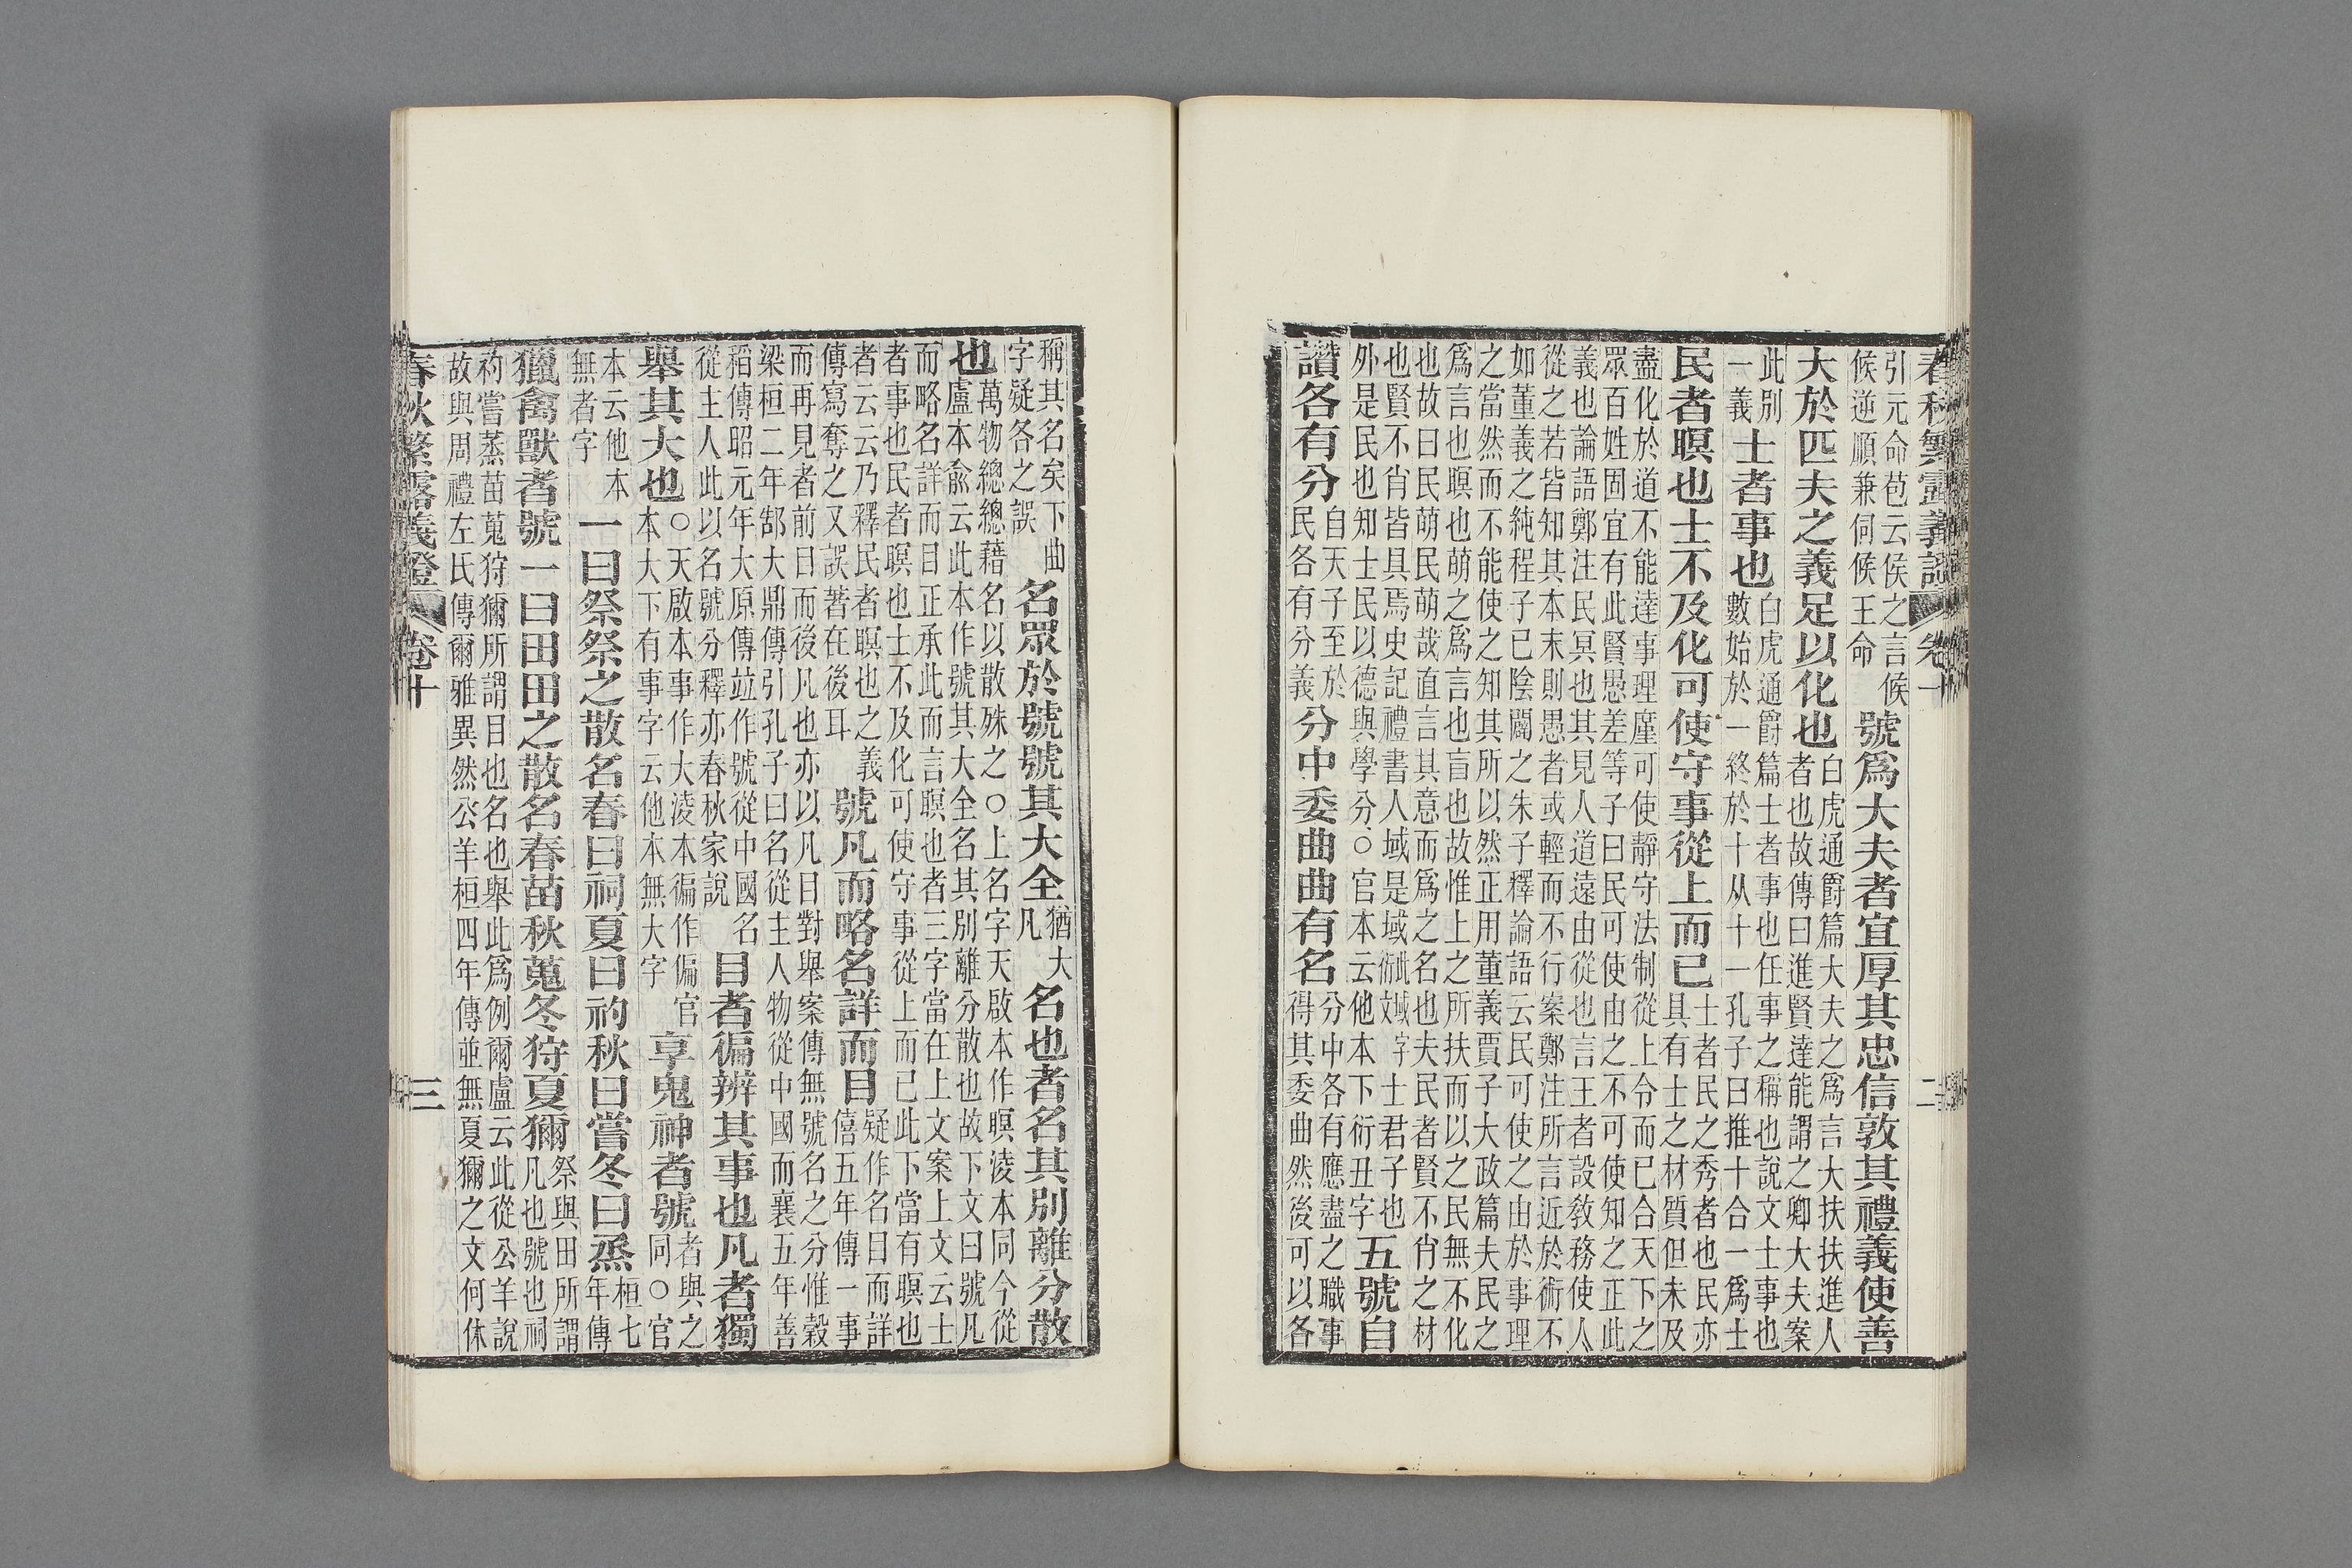 春秋繁露義證 卷十 二
引元命苞云侯之言候
候逆順兼伺候王命
號爲大夫者宜厚其忠信敦其禮義使善
大於匹夫之義足以化也
白虎通爵篇大夫之爲言大扶扶進人
者也故傳曰進賢達能謂之卿大夫案
此別
一義
士者事也
白虎通爵篇士者事也任事之稱也說文士事也
數始於一終於十从十一孔子曰推十合一爲士
民者瞑也士不及化可使守事從上而已
士者民之秀者也民亦
具有士之材質但未及
盡化於道不能達事理可使靜守法制從上令而已合天下之
眾百姓固宜有此賢愚差等子曰民可使由之不可使知之正此
義也論語鄭注民冥也其見人道遠由從也言王者設敎務使人
從之若皆知其本末則愚者或輕而不行案鄭注所言近於術不
如董義之純程子已陰闢之朱子釋論語云民可使之由於事理
之當然而不能使之知其所以然正用董義賈子大政篇夫民之
爲言也瞑也萌之爲言也盲也故惟上之所扶而以之民無不化
也故曰民萌民萌哉直言其意而爲之名也夫民者賢不肖之材
也賢不肖皆具焉史記禮書人域是域 士君子也
外是民也知士民以德與學分○官本云他本下衍丑字
五號自
讚各有分
自天子至於
民各有分義
分中委曲曲有名
分中各有應盡之職事
得其委曲然後可以各
稱其名矣下曲
字疑各之誤
名眾於號號其大全
猶大
凡
名也者名其別離分散
也
萬物總總藉名以散殊之○上名字天啟本作瞑淩本同今從
盧本俞云此本作號其大全名其別離分散也故下文曰號凡
而略名詳而目正承此而言瞑也者三字當在上文案上文云士
者事也民者瞑也士不及化可使守事從上而已此下當有瞑也
者云云乃釋民者瞑也之義
傳寫奪之又誤著在後耳
號凡而略名詳而目
疑作名目而詳
僖五年傳一事
而再見者前目而後凡也亦以凡目對舉案傳無號名之分惟穀
梁桓二年郜大鼎傳引孔子曰名從主人物從中國而襄五年善
稻傳昭元年大原傳竝作號從中國名
從主人此以名號分釋亦春秋家說
目者徧辨其事也凡者獨
舉其大也
○天啟本事作大淩本徧作偏官
本大下有事字云他本無大字
享鬼神者號
者與之
同○官
本云他本
無者字
一曰祭祭之散名春曰祠夏曰礿秋曰嘗冬曰烝
桓七
年傳
獵禽獸者號一曰田田之散名春苗秋蒐冬狩夏獮
祭與田所謂
凡也號也祠
礿嘗蒸苗蒐狩獮所謂目也名也舉此爲例爾盧云此從公羊說
故與周禮左氏傳爾雅異然公羊桓四年傳並無夏獮之文何休
春秋繁露義證 卷十 三